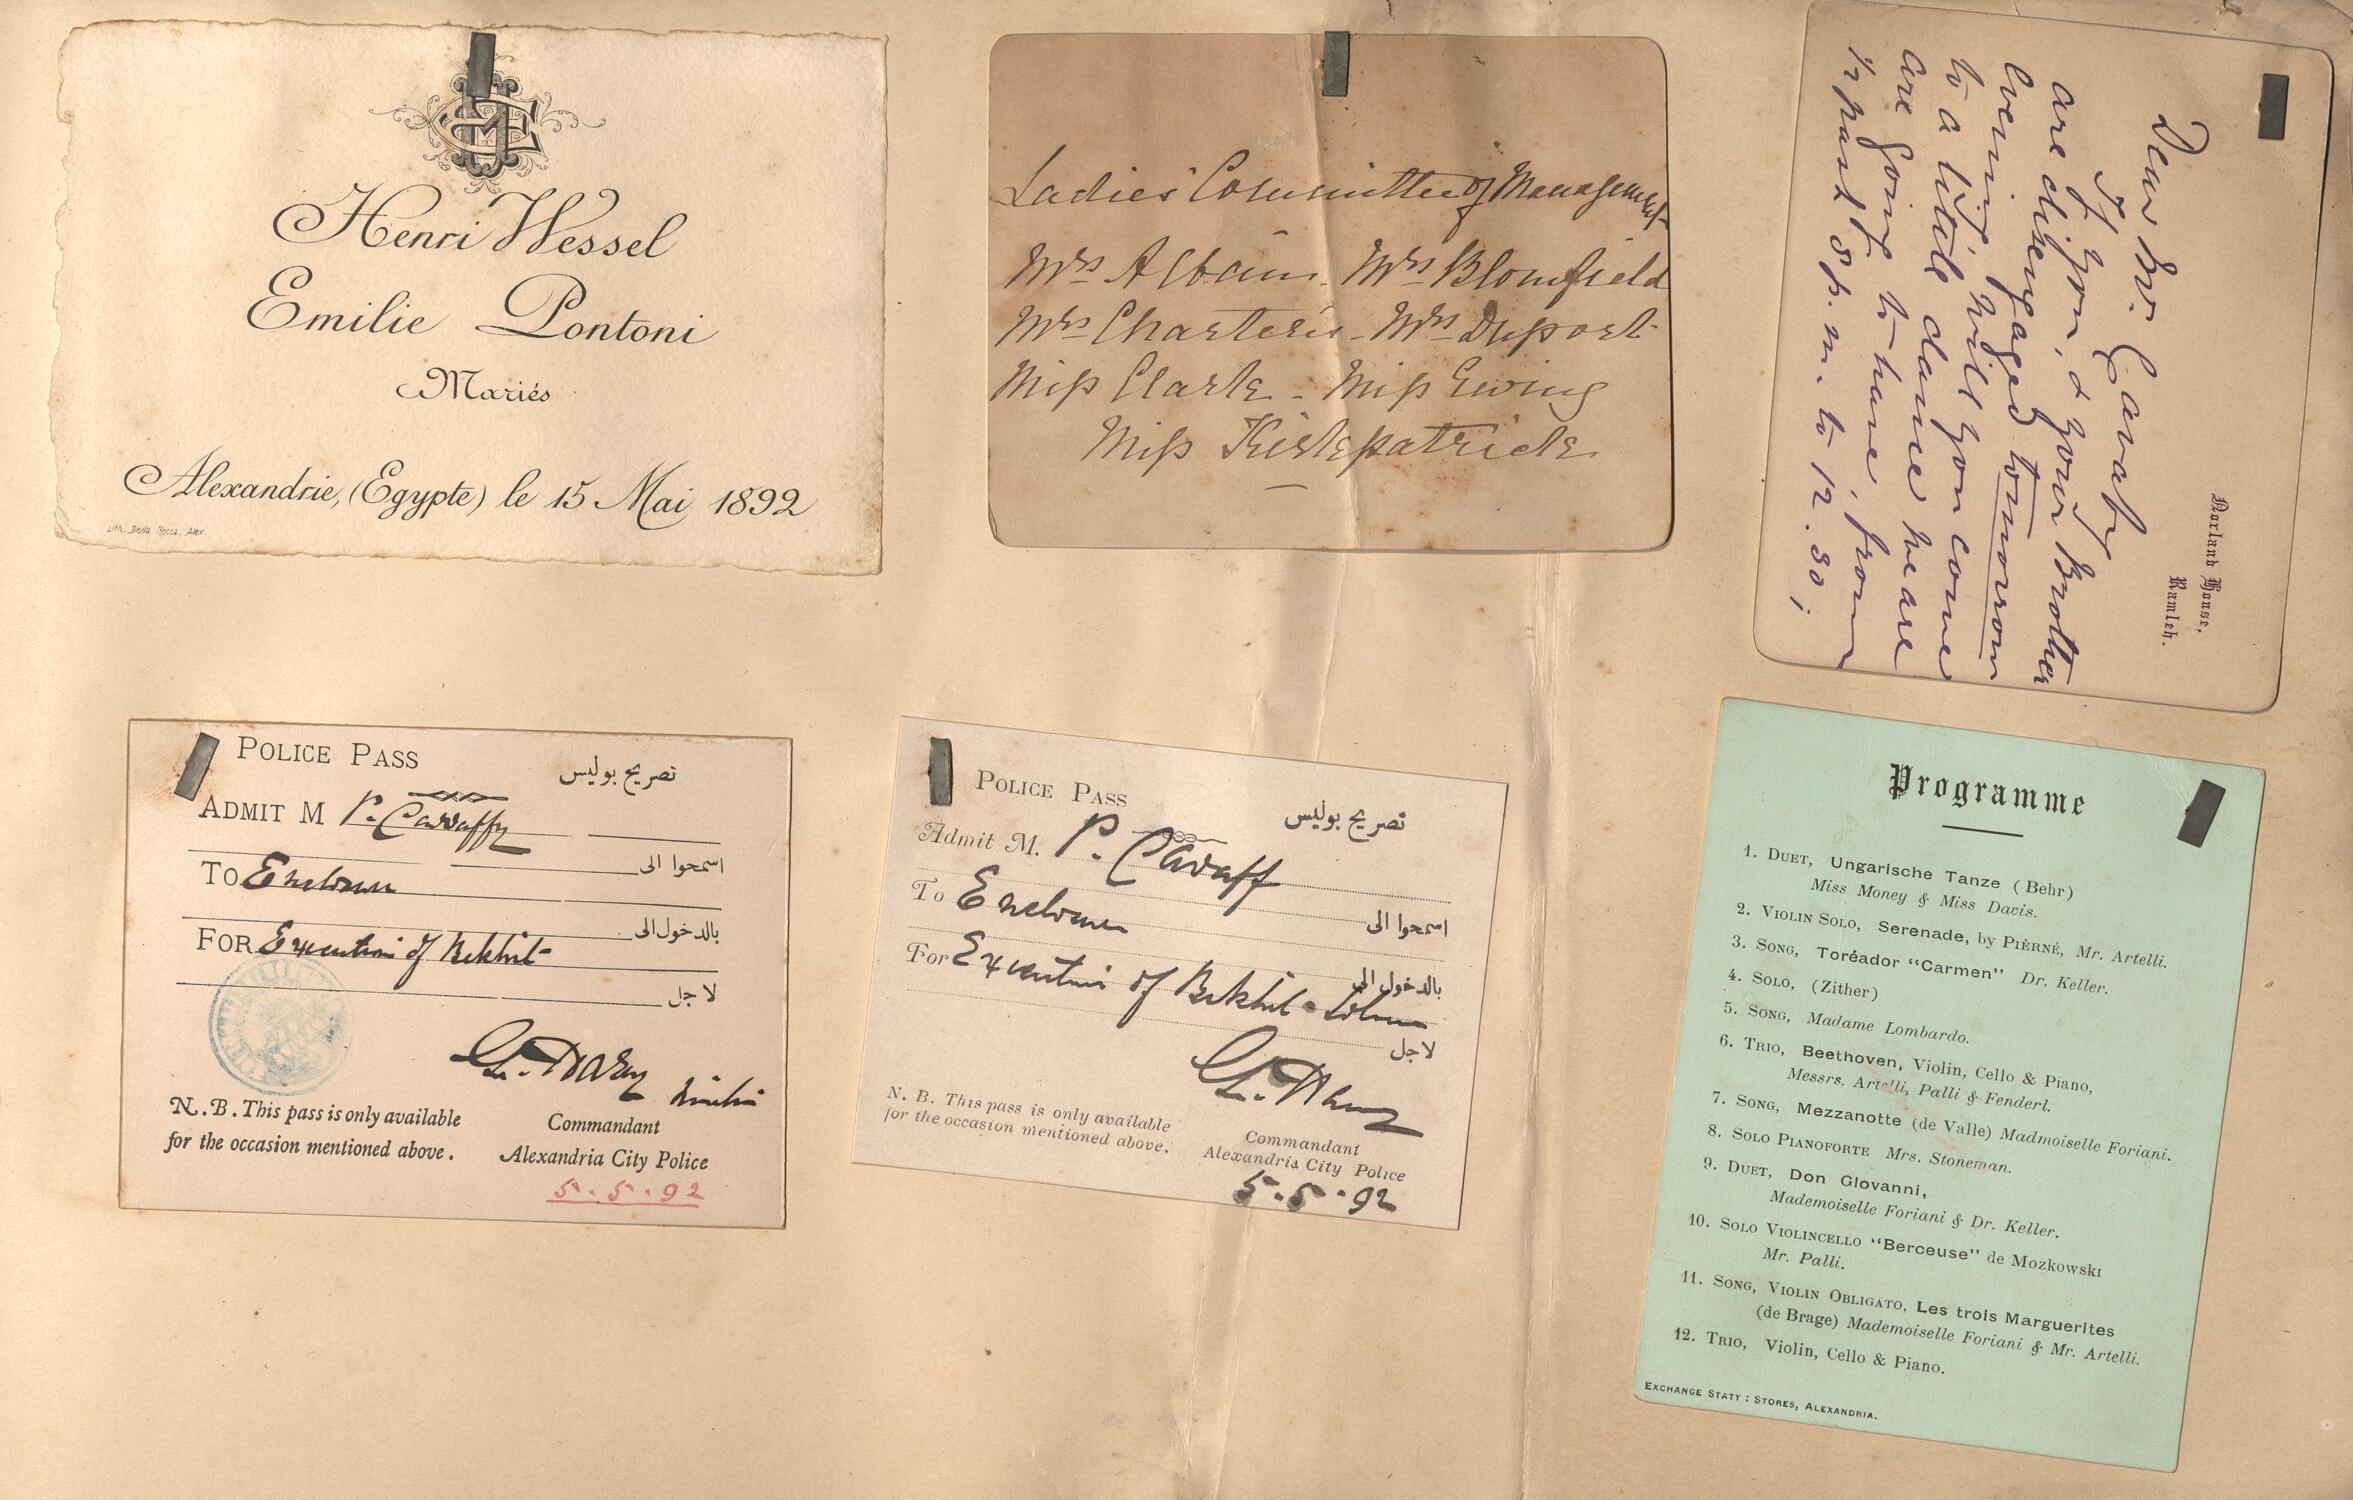 Henri Wessel
Emilie Pontoni
Mariés
Alexandrie, (Egypte) le 15 Mai 1892
Lith. Della Rocca, Alex.
Ladies' Committee of Management
Mrs Alban - Mrs Blomfield
Mrs Charteris - Mrs Duport
Miss Clark - Miss Ewing
Miss Kirkpatrick
Dorland House,
Ramleh.
Dear Mr. Cavafy
If you, & your Brother
are disengaged tomorrow
evening, will you come
to a little dance we are
are going to have, from
½ past 8 p.m. to 12.30;
POLICE PASS
تصريح بوليس
ADMIT M P. Cavaffy
اسمحوا الى
TO Enclosure
بالدخول الى
FOR Execution of Bekhit
لاجل
N.B. This pass is only available
for the occasion mentioned above.
Commandant
Alexandria City Police
5.5.92
POLICE PASS
تصريح بوليس
Admit M. P. Cavaff
اسمحوا الى
To Enclosure
بالدخول الى
For Execution of Bekhit
لاجل
N. B. This pass is only available
for the occasion mentioned above.
Commandant
Alexandria City Police
5.5.92
Programme
1. DUET, Ungarische Tanze (Behr)
Miss Money & Miss Davis.
2. VIOLIN SOLO, Serenade, by PIÈRNÉ, Mr. Artelli.
3. SONG, Toréador "Carmen" Dr. Keller.
4. SOLO, (Zither)
5. SONG, Madame Lombardo.
6. TRIO, Beethoven, Violin, Cello & Piano,
Messrs. Artelli, Palli & Fenderl.
7. SONG, Mezzanotte (de Valle) Madmoiselle Foriani.
8. SOLO PIANOFORTE Mrs. Stoneman.
9. DUET, Don Giovanni,
Mademoiselle Foriani & Dr. Keller.
10. SOLO VIOLINCELLO "Berceuse" de MOZKOWSKI
Mr. Palli.
11. SONG, VIOLIN OBLIGATO, Les trois Marguerites
(de Brage) Mademoiselle Foriani & Mr. Artelli.
12. TRIO, Violin, Cello & Piano.
EXCHANGE STATY : STORES, ALEXANDRIA.